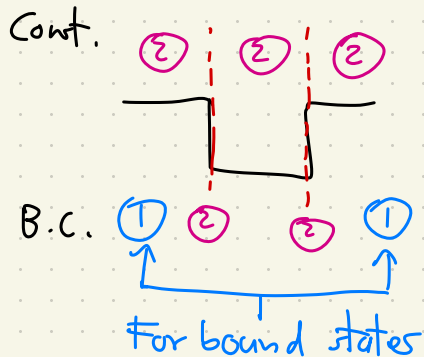 Cont.
② ② ②
B.C. ① ② ② ①
For bound states